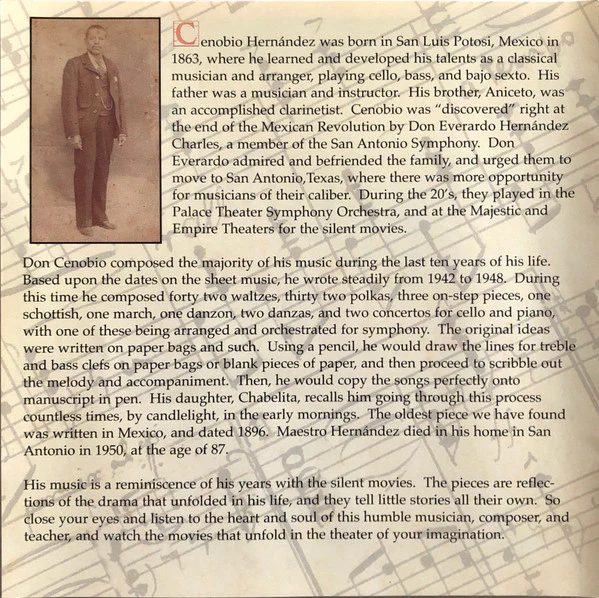 Cenobio Hernández was born in San Luis Potosi, Mexico in
1863, where he learned and developed his talents as a classical
musician and arranger, playing cello, bass, and bajo sexto. His
father was a musician and instructor. His brother, Aniceto, was
an accomplished clarinetist. Cenobio was “discovered” right at
the end of the Mexican Revolution by Don Everardo Hernández
Charles, a member of the San Antonio Symphony. Don
Everardo admired and befriended the family, and urged them to
move to San Antonio,Texas, where there was more opportunity
for musicians of their caliber. During the 20's, they played in the
Palace Theater Symphony Orchestra, and at the Majestic and
Empire Theaters for the silent movies.
Don Cenobio composed the majority of his music during the last ten years of his life.
Based upon the dates on the sheet music, he wrote steadily from 1942 to 1948. During
this time he composed forty two waltzes, thirty two polkas, three on-step pieces, one
schottish, one march, one danzon, two danzas, and two concertos for cello and piano,
with one of these being arranged and orchestrated for symphony. The original ideas
were written on paper bags and such. Using a pencil, he would draw the lines for treble
and bass clefs on paper bags or blank pieces of paper, and then proceed to scribble out
the melody and accompaniment. Then, he would copy the songs perfectly onto
manuscript in pen. His daughter, Chabelita, recalls him going through this process
countless times, by candlelight, in the early mornings. The oldest piece we have found
was written in Mexico, and dated 1896. Maestro Hernández died in his home in San
Antonio in 1950, at the age of 87.
His music is a reminiscence of his years with the silent movies. The pieces are reflec-
tions of the drama that unfolded in his life, and they tell little stories all their own. So
close your eyes and listen to the heart and soul of this humble musician, composer, and
teacher, and watch the movies that unfold in the theater of your imagination.